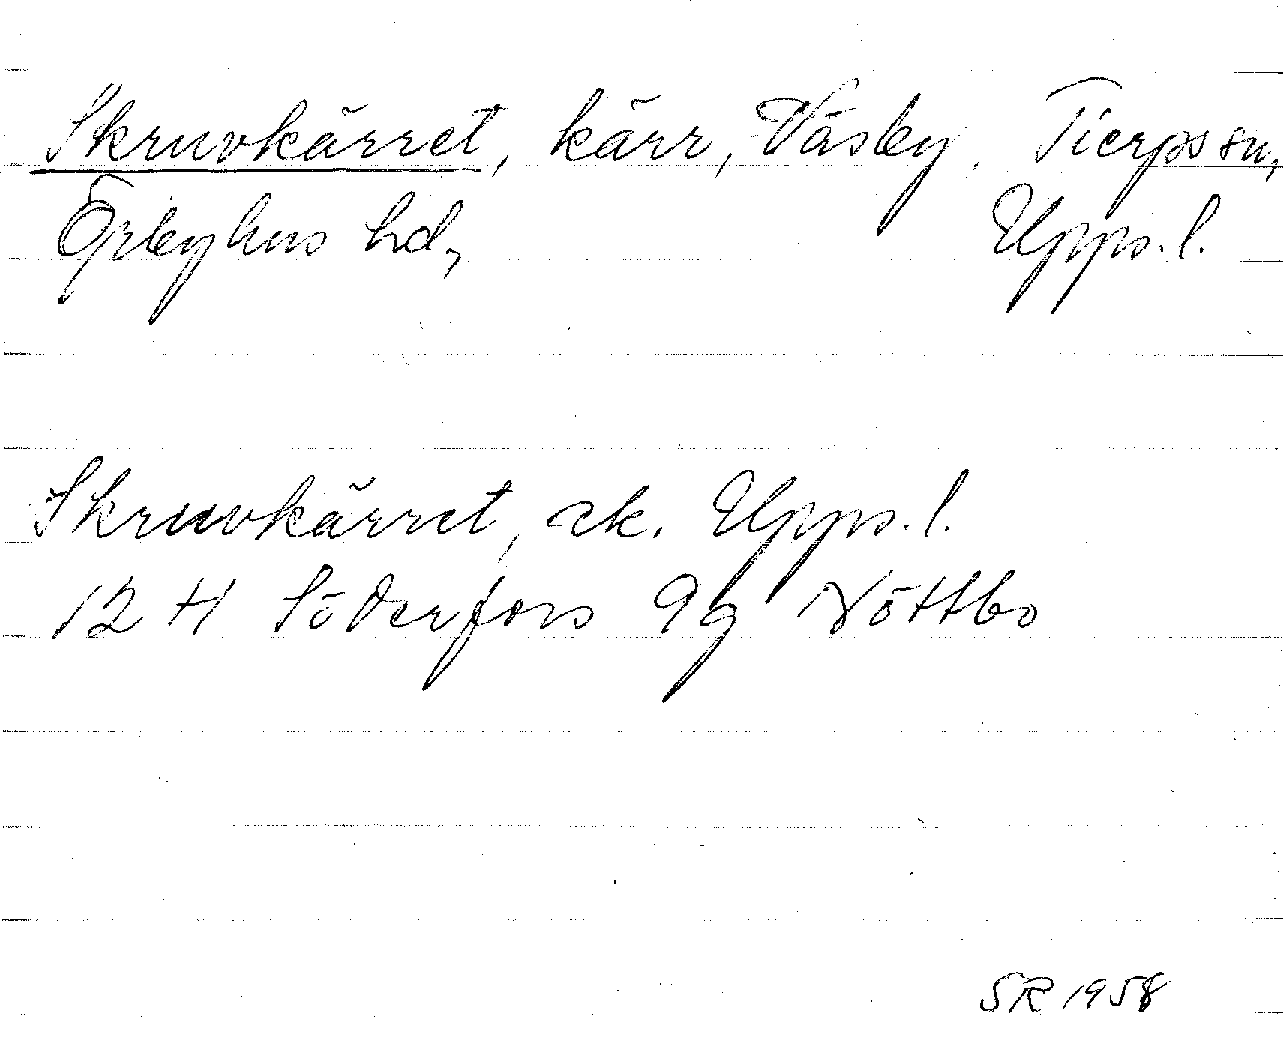 Skruvkärret, kärr, Väsby, Tierps sn,
Örbyhus hd, Upps. l.
Skruvkärret, ek. Upps. l.
12 H Söderfors 9 g Nöttbo
SR 1958